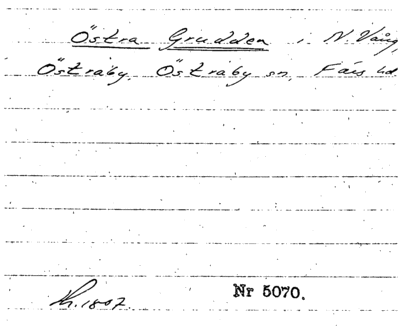 Östra Grudden i N. Vång,
Östraby. Östraby sn. Färs hd
Nr 5070.